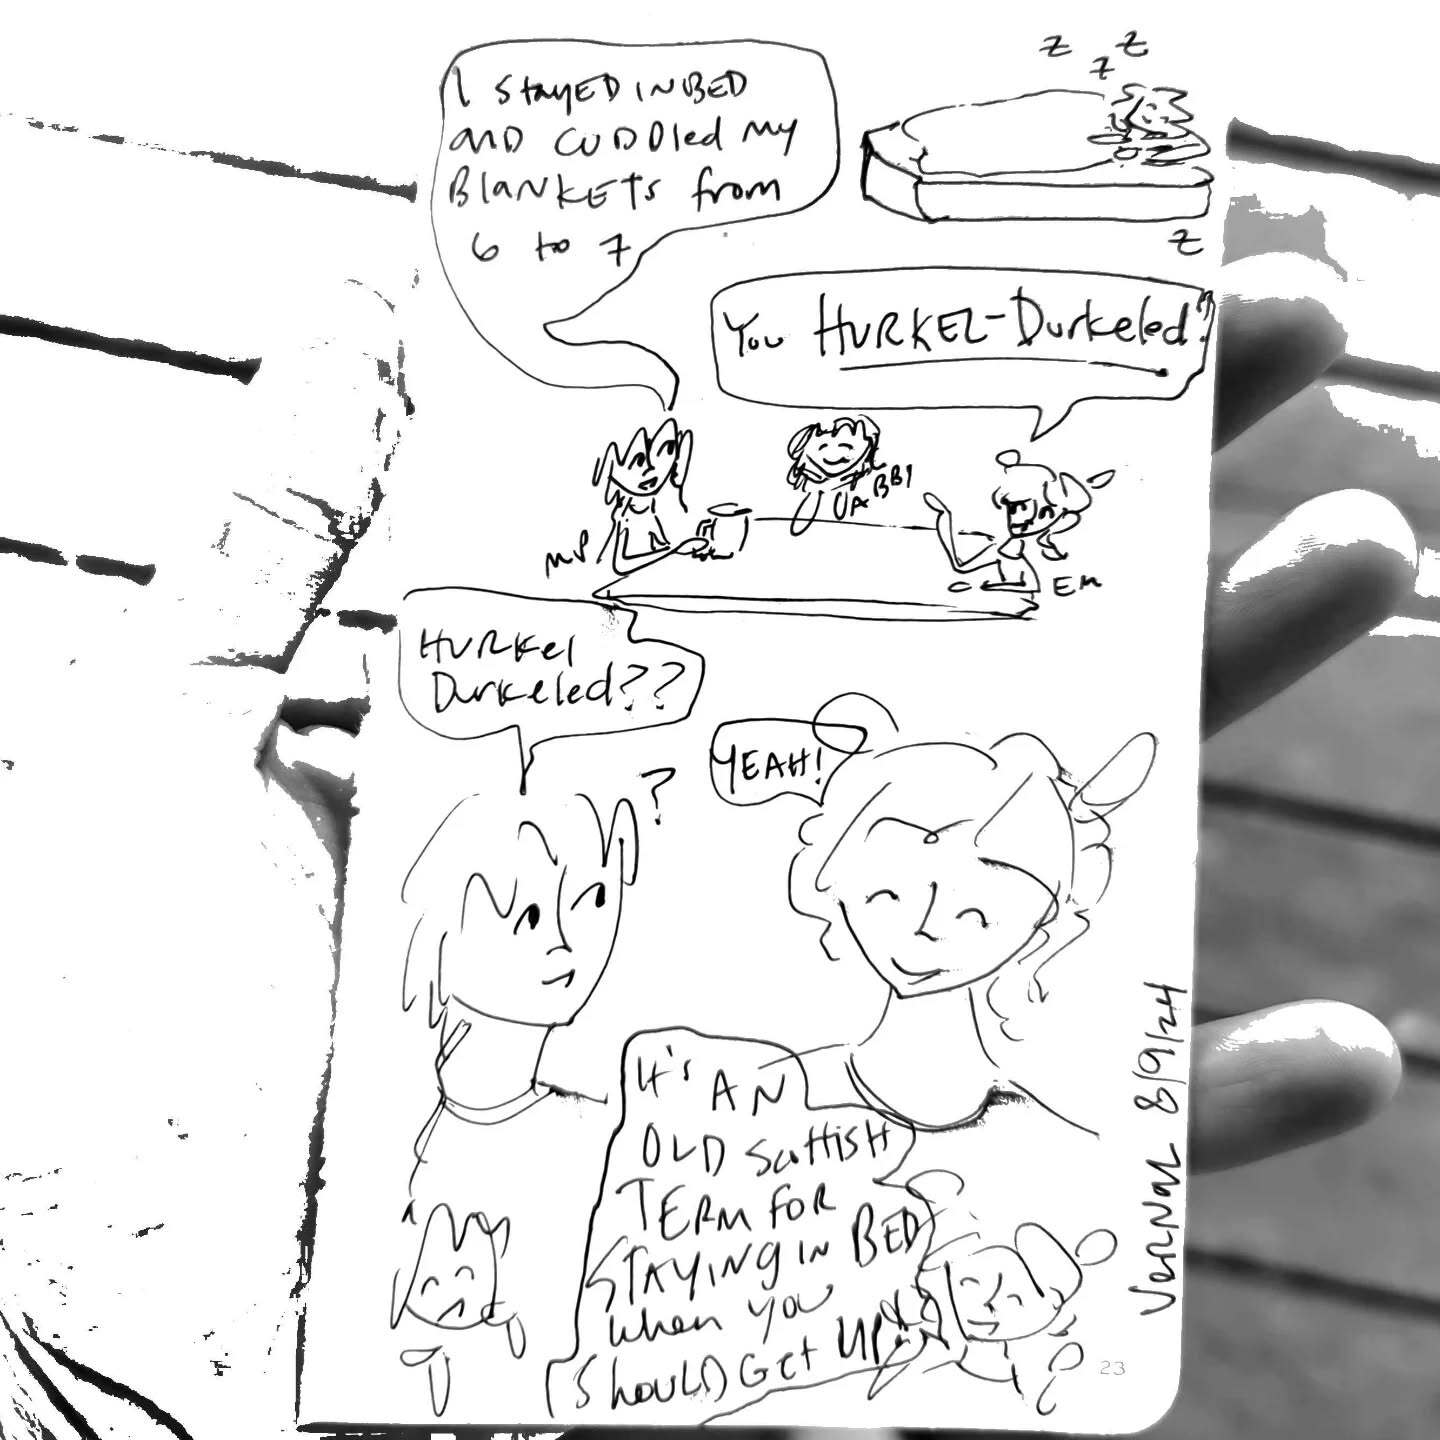 I stayed in bed
and cuddled my
blankets from
6 to 7
z z z
z
You HURKEL-Durkeled?
MP
ABBI
EM
HURKEL
Durkeled??
?
YEAH!
It's AN
OLD Scottish
TERM FOR
STAYING IN BED
when you
should get up!
Vernal 8/9/24
23